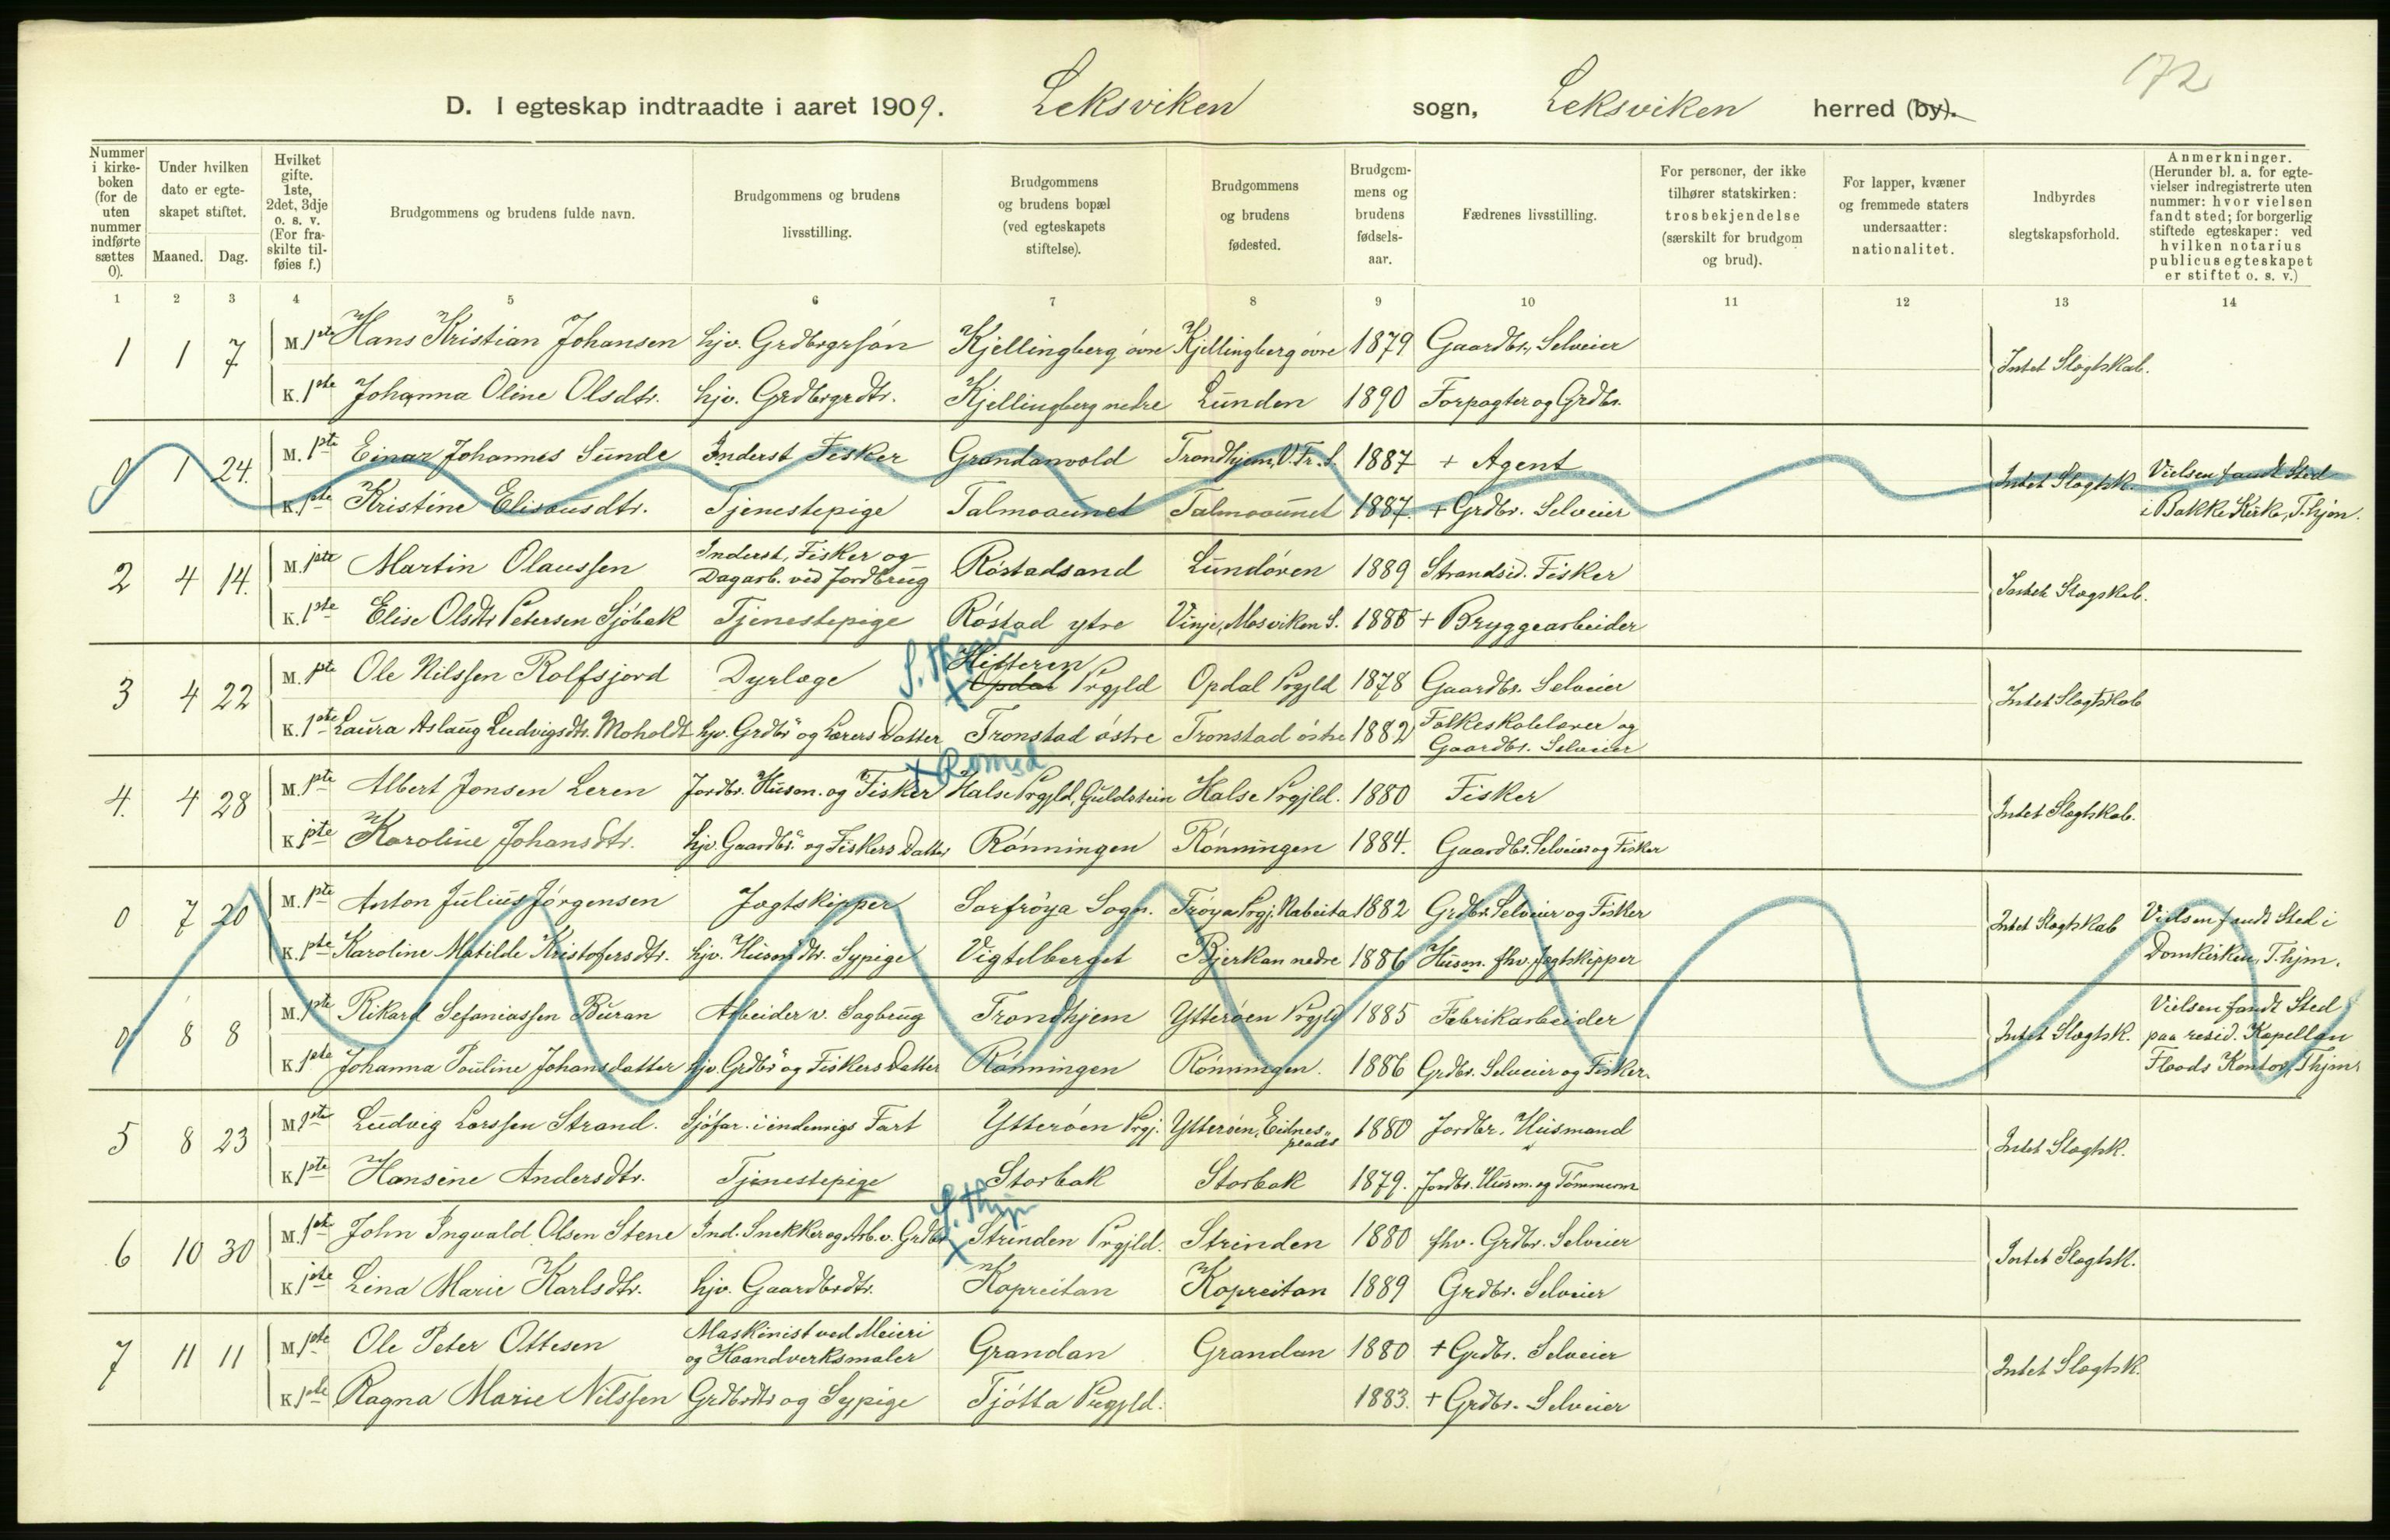 172
D. I egteskap indtraadte i aaret 1909. Leksviken sogn, Leksviken herred (by).
Nummer i kirke-boken (for de uten nummer indførte sættes 0).
Under hvilken dato er egte-skapet stiftet.
Maaned. Dag.
Hvilket gifte. 1ste, 2det, 3dje o. s. v. (For fra-skilte til-føies f.)
Brudgommens og brudens fulde navn.
Brudgommens og brudens livsstilling.
Brudgommens og brudens bopæl (ved egteskapets stiftelse).
Brudgommens og brudens fødested.
Brudgom-mens og brudens fødsels-aar.
Fædrenes livsstilling.
For personer, der ikke tilhører statskirken: trosbekjendelse (særskilt for brudgom og brud).
For lapper, kvæner og fremmede staters undersaatter: nationalitet.
Indbyrdes slegtskapsforhold.
Anmerkninger. (Herunder bl. a. for egte-vielser indregistrerte uten nummer: hvor vielsen fandt sted; for borgerlig stiftede egteskaper: ved hvilken notarius publicus egteskapet er stiftet o. s. v.)
1 2 3 4 5 6 7 8 9 10 11 12 13 14
1 1 7 M. 1ste Hans Kristian Johansen hjv. Grdbrgrsón Kjellingberg óvre Kjellingberg óvre 1879 Gaardbr. Selveier Intet Slægtskab.
K. 1ste Johanna Oline Olsdtr. hjv. Grdbrgrdtr. Kjellingberg nedre Lunden 1890 Forpagter og Grdbr.
0 1 24. M. 1ste Einar Johannes Sunde Inderst Fisker Grandanvold Trondhjem, V. Fr. S. 1887 + Agent Intet Slægtsk. Vielsen fandt Sted
K. 1ste Kristine Elisausdtr. Tjenestepige Talmoaunet Talmoaunet 1887. + Grdbr. Selveier i Bakke Kirke, T.hjm.
2 4 14. M. 1ste Martin Olaussen Inderst, Fisker og Dagarb. ved Jordbrug Róstadsand Lundóren 1889 Strandsid. Fisker Intet Slægskab.
K. 1ste Elise Olsdtr Petersen Sjóbak Tjenestepige Róstad ytre Vinje, Mosviken S. 1888 + Bryggearbeider
S. Thjem
3 4 22 M. 1ste Ole Nilssen Rolfsjord Dyrlæge x Hitteren Opdal Prgjld Opdal Prgjld 1878 Gaardbr. Selveier Intet Slægtskab
K. 1ste Laura Aslaug Ludvigsdtr. Moholdt hjv. Grdbr og Lærers Datter Tronstad óstre Tronstad óstre 1882 Folkeskolelærer og Gaardbr. Selveier
x Romsd
4. 4 28 M. 1ste Albert Jonsen Leren Jordbr. Husm. og Fisker Halse Prgjld, Guldstein Halse Prgjld. 1880 Fisker Intet Slægtskab.
K. 1ste Karoline Johansdtr. hjv. Gaardbr. og Fiskers Datter Rónningen Rónningen 1884. Gaardbr. Selveier og Fisker
0 7 20 M. 1ste Anton Julius Jórgensen Jagtskipper Sørfróya Sogn. Fróya Prgj. Nabeita 1882 Grdbr. Selveier og Fisker Intet Slægtskab Vielsen fandt Sted i
K. 1ste Karoline Matilde Kristofersdtr. hjv. Husmdtr. Sypige Vigtelberget Bjerkan nedre 1886 Husm. fhv. Jagtskipper Domkirken, T.hjm.
0 8 8 M. 1ste Rikard Sefaniassen Buran Arbeider v. Sagbrug Trondhjem Ytteróen Prgjld 1885 Fabrikarbeider Intet Slægtsk. Vielsen fandt Sted paa resid. Kapellan
K. 1ste Johanna Pauline Johansdatter hjv. Grdbr og Fiskers Datter Rónningen Rónningen. 1886 Grdbr. Selveier og Fisker. Floods Kontor, Thjm.
5 8 23 M. 1ste Ludvig Larssen Strand. Sjófar. i indenrigs Fart Ytteróen Prgj. Ytteróen, Eidnesplads 1880 Jordbr. Husmand Intet Slægtsk.
K. 1ste Hansine Andersdtr. Tjenestepige Storbak Storbak 1879. Jordbr. Husm. og Tómmerm
S. Thjm
6 10 30 M. 1ste John Ingvald Olsen Stene Ind. Snekker og Arb. v. Grdbr x Strinden Prgjld. Strinden 1880 fhv. Grdbr. Selveier Intet Slægtsk.
K. 1ste Lina Marie Karlsdtr. hjv. Gaardbrdtr. Kopreitan Kopreitan 1889 Grdbr. Selveier
7 11 11 M. 1ste Ole Peter Ottesen Maskinist ved Meieri og Haandverksmaler Grandan Grandan 1880 + Grdbr. Selveier Intet Slægtsk.
K. 1ste Ragna Marie Nilssen Grdbrdtr og Sypige Tjótta Prgjld. 1883. + Grdbr. Selveier